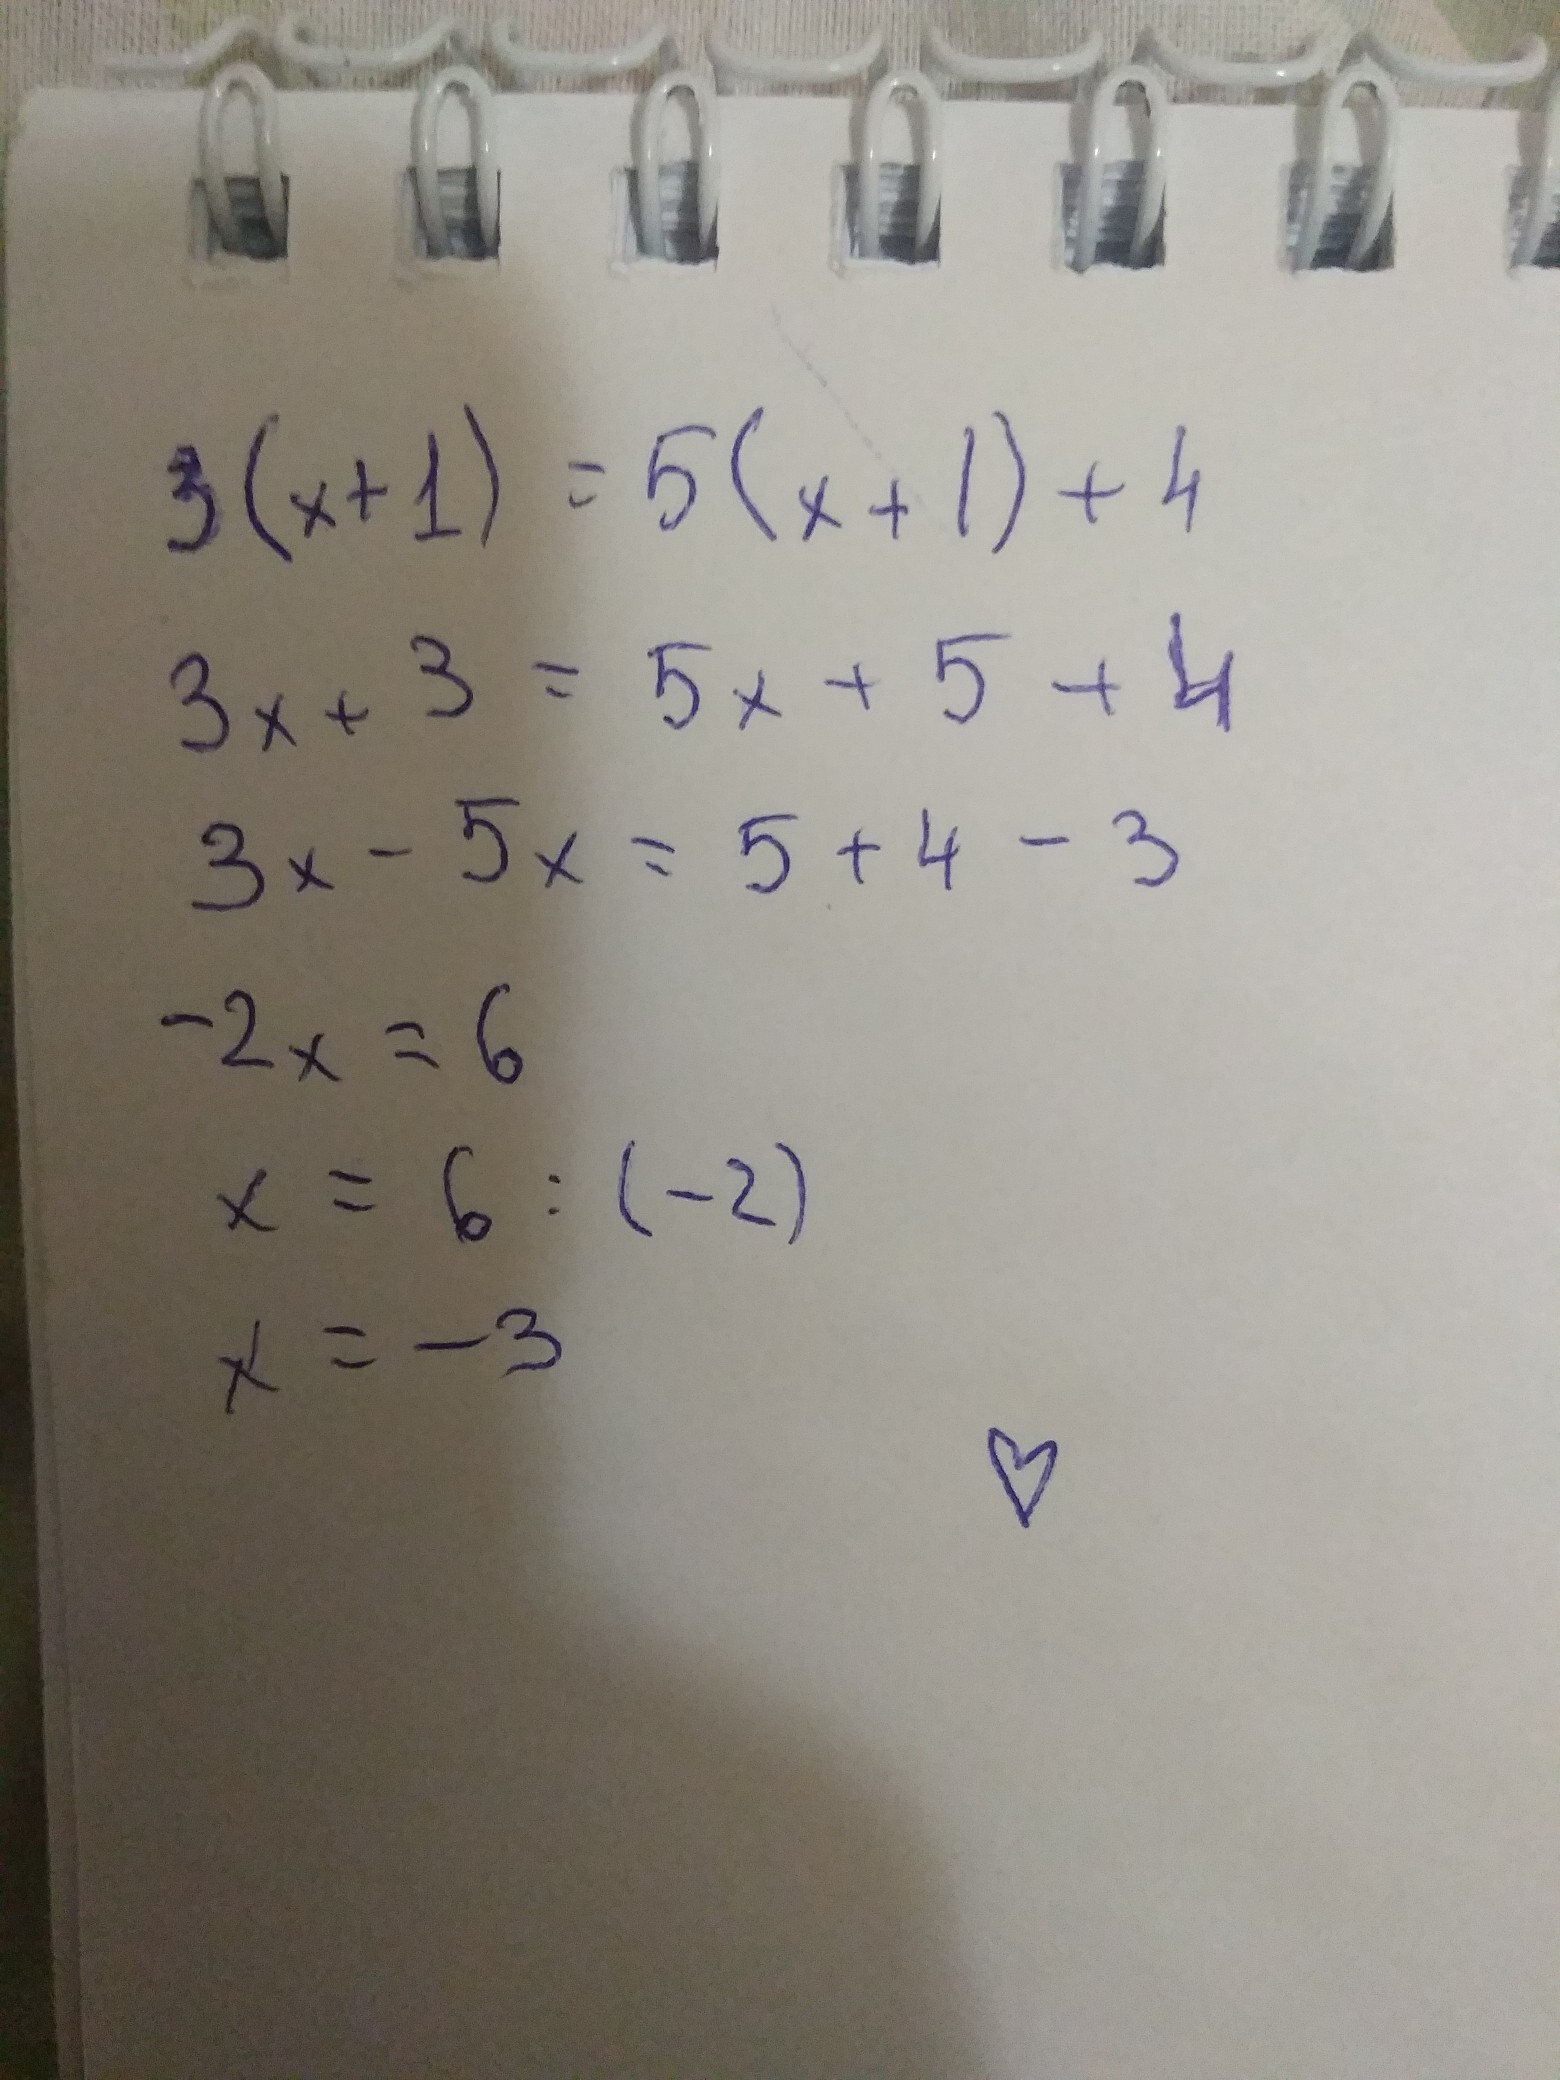 3(x+1) = 5(x+1)+4
3x+3 = 5x+5+4
3x-5x = 5+4-3
-2x = 6
x = 6:(-2)
x = -3
♡